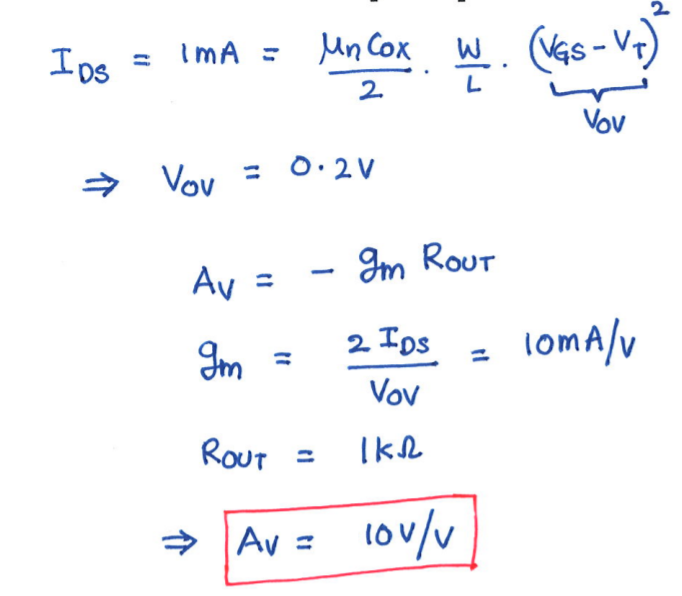 I_DS = 1mA = μnCox/2 · W/L · (VGS - VT)²
VOV
⇒ VOV = 0.2V
AV = - gm ROUT
gm = 2 IDS / VOV = 10mA/V
ROUT = 1kΩ
⇒ AV = 10V/V